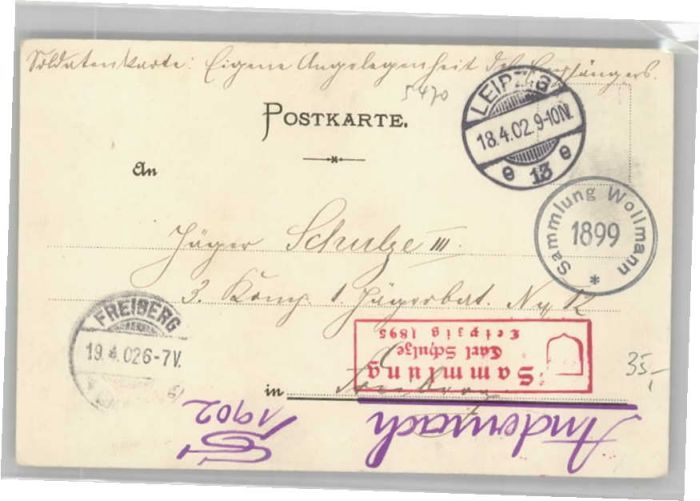 Soldatenkarte: Eigene Angelegenheit des Empfängers.
5470
POSTKARTE.
LEIPZIG
18.4.02.9-10N.
e 13 e
An
Sammlung Wollmann
1899
*
Jäger Schulze III.
3. Komp. 1. Jägerbat. No. 12
FREIBERG
19.4.02 6-7V.
Sammlung
Carl Schulze
Leipzig 1895
35,-
in Freiberg
Andernach
1902